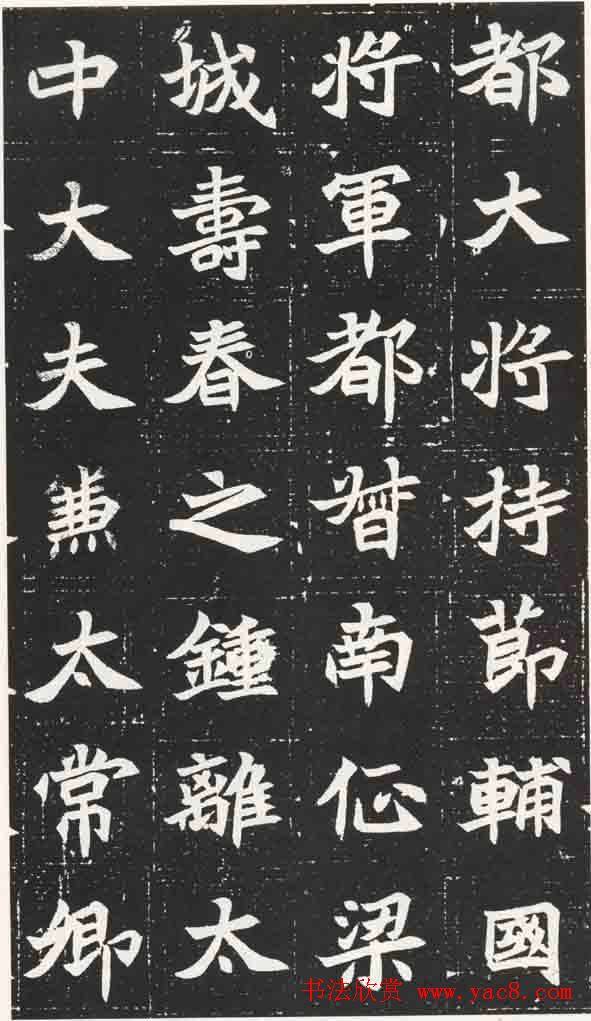 都大将持節輔國
将軍都督南征梁
城壽春之鍾離太
中大夫兼太常卿
书法欣赏 www.yac8.com